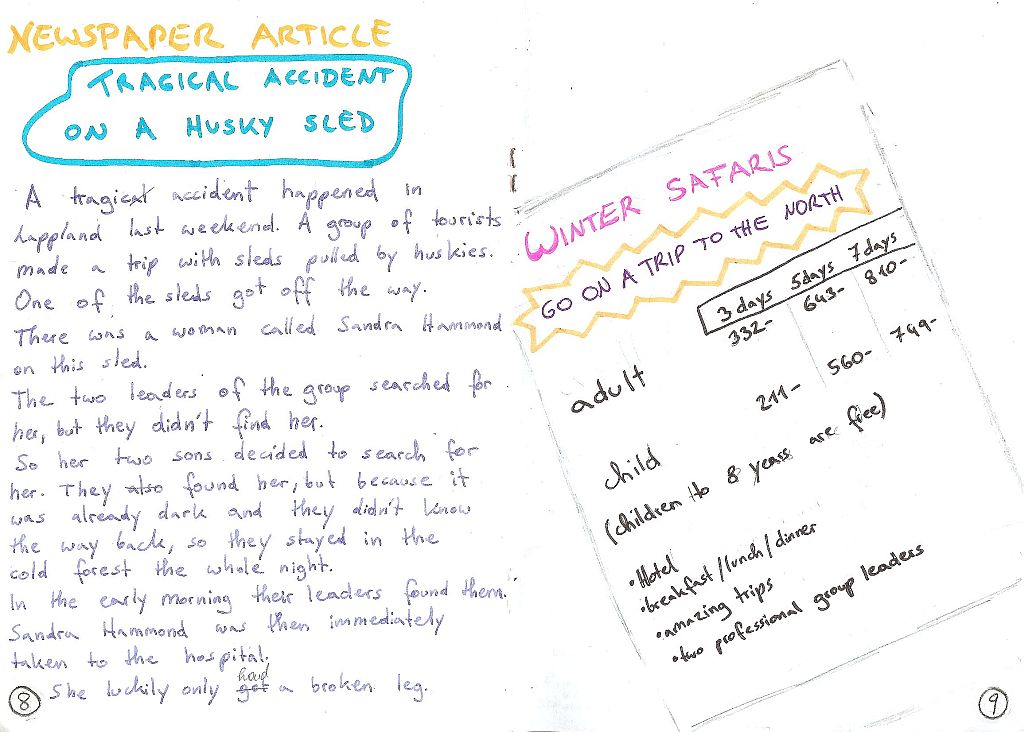 NEWSPAPER ARTICLE
TRAGICAL ACCIDENT
ON A HUSKY SLED
A tragical accident happened in
Lappland last weekend. A group of tourists
made a trip with sleds pulled by huskies.
One of the sleds got off the way.
There was a woman called Sandra Hammond
on this sled.
The two leaders of the group searched for
her, but they didn't find her.
So her two sons decided to search for
her. They also found her, but because it
was already dark and they didn't know
the way back, so they stayed in the
cold forest the whole night.
In the early morning their leaders found them.
Sandra Hammond was then immediately
taken to the hospital.
She luckily only got had a broken leg.
8
WINTER SAFARIS
GO ON A TRIP TO THE NORTH
3 days 5days 7days
adult 332- 643- 810-
child 211- 560- 749-
(children to 8 years are free)
•Hotel
•breakfast/lunch/dinner
•amazing trips
•two professional group leaders
9